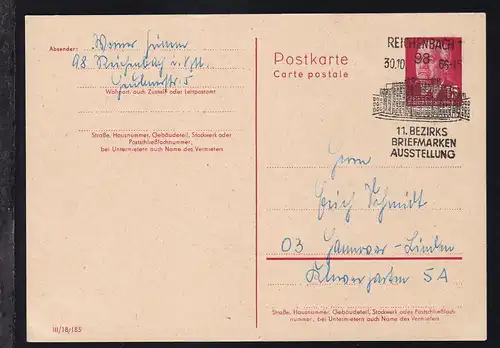 Absender: Werner Hüttner
98 Reichenbach i. Vgtl.
Zeulnerstr. 5
Wohnort, auch Zustell- oder Leitpostamt
Straße, Hausnummer, Gebäudeteil, Stockwerk oder
Postschließfachnummer,
bei Untermietern auch Name des Vermieters
III/18/185
Postkarte
Carte postale
REICHENBACH
98
30.10
15
11. BEZIRKS
BRIEFMARKEN
AUSSTELLUNG
Herrn
Erich Schmidt
03 Hannover-Linden
5A
Straße, Hausnummer, Gebäudeteil, Stockwerk oder Postschließfach-
nummer, bei Untermietern auch Name des Vermieters